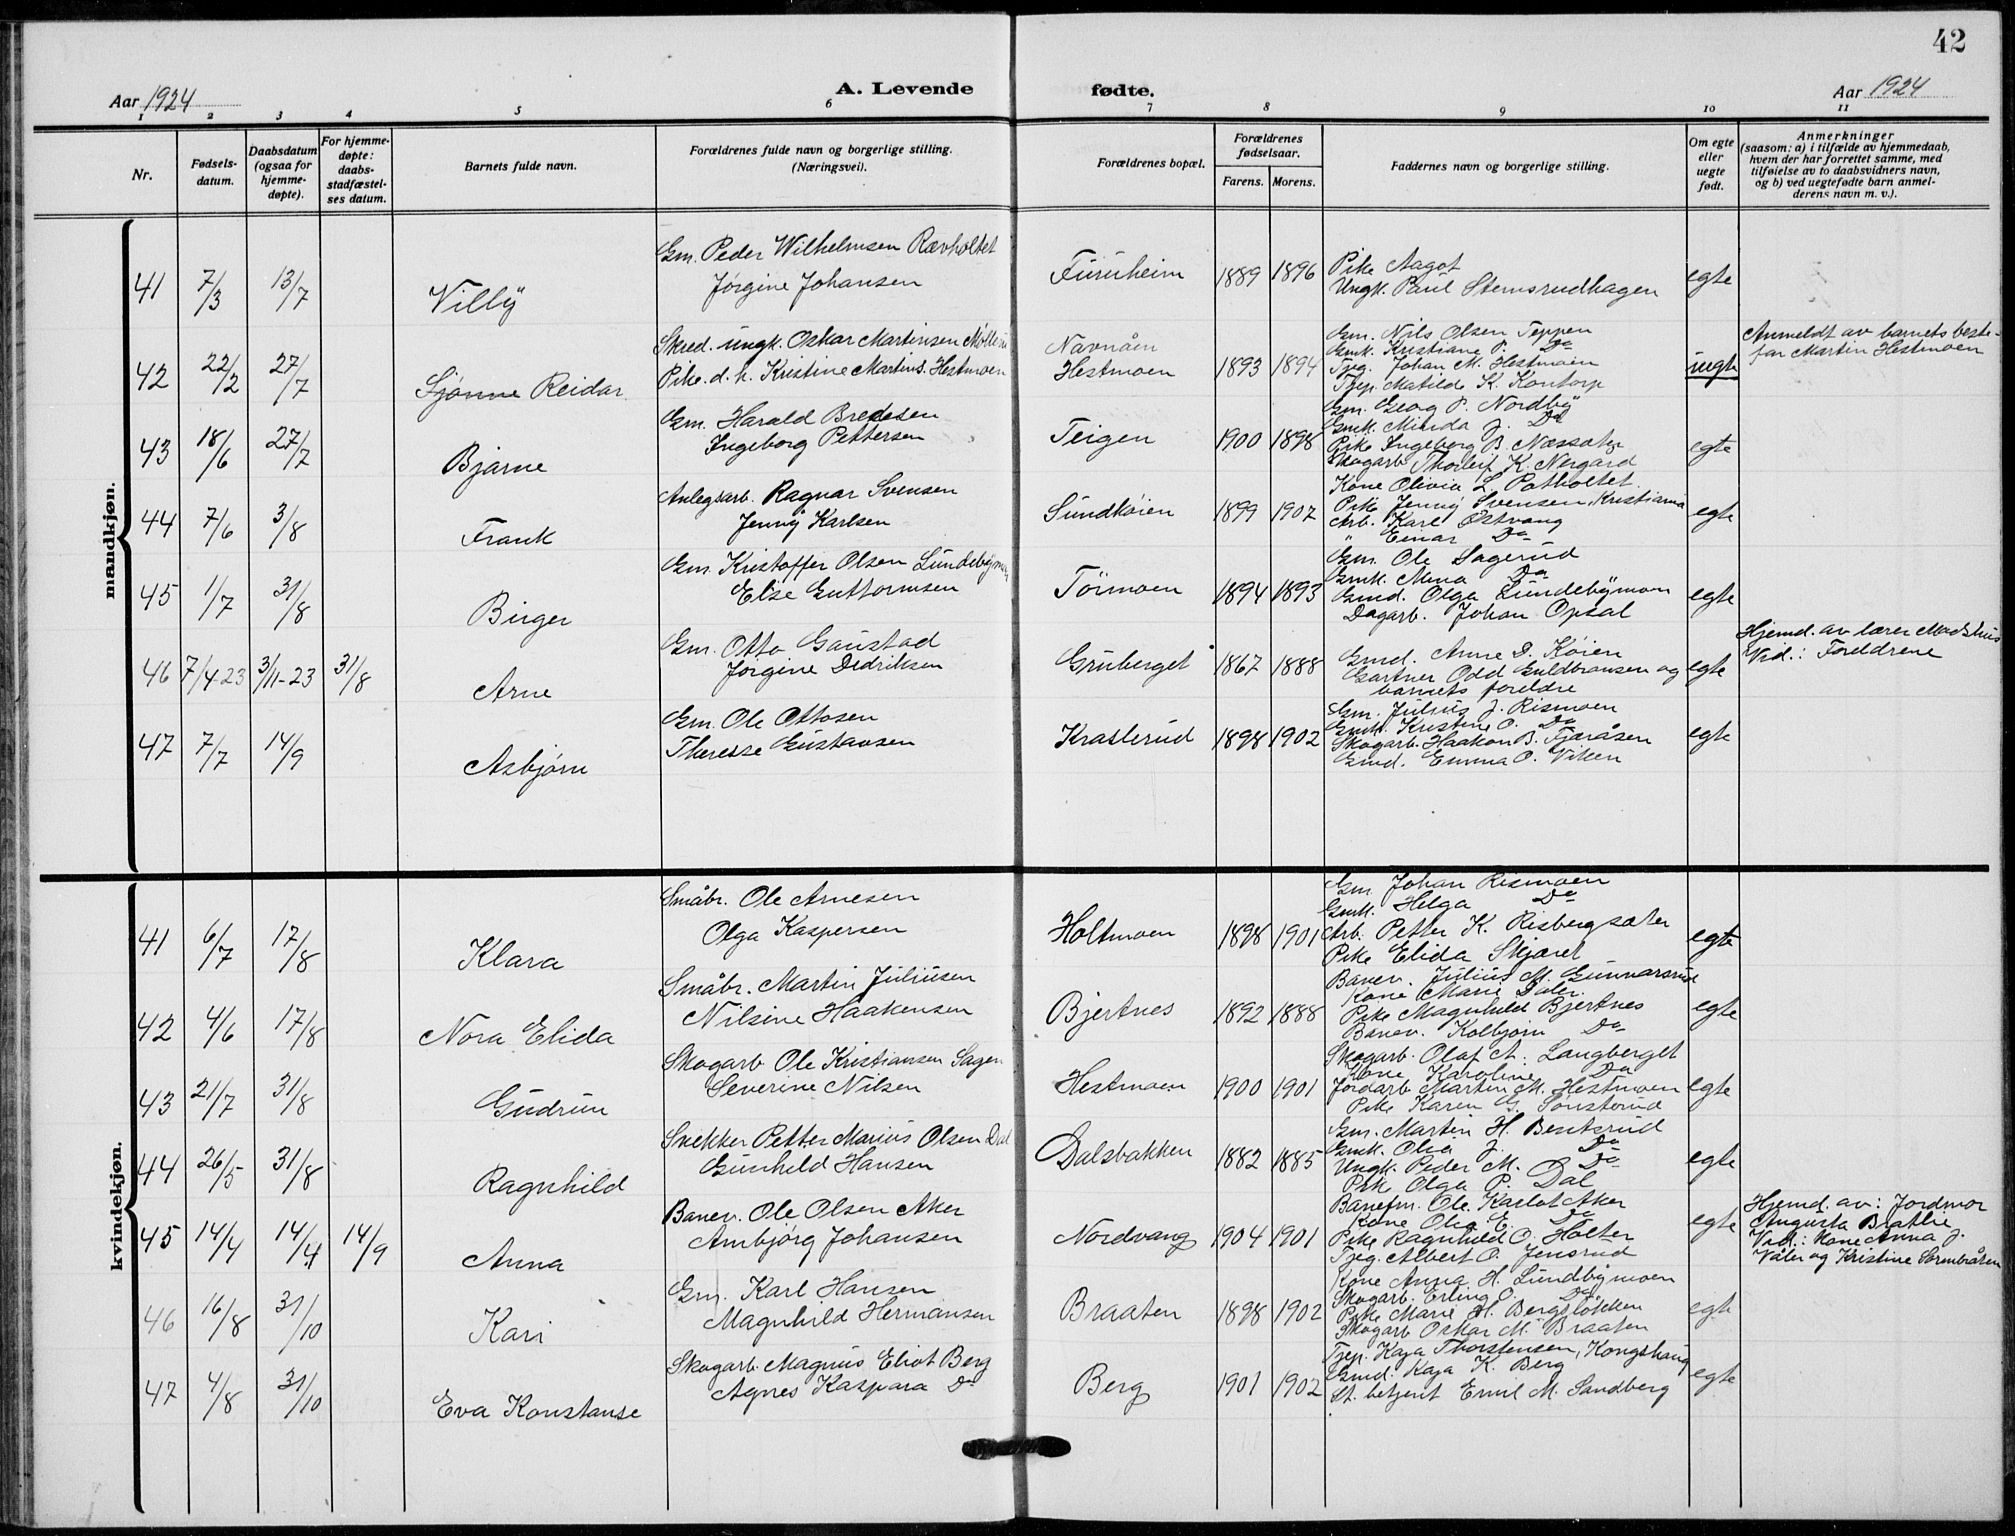 42
Aar 1924
A. Levende fødte.
Aar 1924
1 2 3 4 5 6 7 8 9 10 11
Nr.
Fødsels-
datum.
Daabsdatum
(ogsaa for
hjemme-
døpte).
For hjemme-
døpte:
daabs-
stadfæstel-
ses datum.
Barnets fulde navn.
Forældrenes fulde navn og borgerlige stilling.
(Næringsvei).
Forældrenes bopæl.
Forældrenes
fødselsaar.
Farens. Morens.
Faddernes navn og borgerlige stilling.
Om egte
eller
uegte
født.
Anmerkninger
(saasom: a) i tilfælde av hjemmedaab,
hvem der har forrettet samme, med
tilføielse av to daabsvidners navn,
og b) ved uegtefødte barn anmel-
derens navn m. v.).
mandkjøn.
41 7/3 13/7 Villÿ
Gm. Peder Wilhelmsen Rævholtet
Jørgine Johansen
Furuheim 1889 1896
Pike Aagot
Ungk. Paul Stemsrudhagen
egte
42 22/2 27/7 Sjønne Reidar
Skred. ungk. Oskar Martinsen
Pike. d. h. Kristine Martins. Hestmoen
Navnåen
Hestmoen 1893 1894
Gm. Nils Olsen Teppen
Gmk. Kristiane P. Do
Tjeg. Johan M. Hestmoen
Tjep. Matilde K. Kontorp
uegte
Anmeldt av barnets beste-
far Martin Hestmoen
43 18/6 27/7 Bjarne
Gm. Harald Bredesen
Ingeborg Pettersen
Teigen 1900 1898
Gm. Georg P. Nordbÿ
Gmk. Minda J. Do
Pike Ingeborg B. Næssæter
Skogarb. Thorleif K. Nergard
egte
44 7/6 3/8 Frank
Anlegsarb. Ragnar Svensen
Jenny Karlsen
Sundkøien 1899 1907
Kone Olivia L. Potholtet
Pike Jenny Svensen, Kristiania
Arb. Karl Østvang
" Einar Do
egte
45 1/7 31/8 Birger
Gm. Kristoffer Olsen Lundebymoen
Else Guttormsen
Tørmoen 1894 1893
Gm. Ole Sagerud
Gmk. Mina Do
Gmd. Olga Lundebÿmoen
Dagarb. Johan Opsal
egte
46 7/4-23 3/11-23 31/8 Arne
Gm. Otto Gaustad
Jørgine Dedriksen
Gruberget 1867 1888
Gmd. Anne D. Køien
Gartner Odd Guldbransen og
barnets foreldre
egte
Hjemd. av lærer Madshus
Vid.: Foreldrene
47 7/7 14/9 Asbjørn
Gm. Ole Ottosen
Therese Gustavsen
Krasterud 1898 1902
Gm. Julius J. Rismoen
Gmk. Kristine O. Do
Skogarb. Haakon B. Fjæråsen
Gmd. Emma O. Viken
egte
kvindekjøn.
41 6/7 17/8 Klara
Småbr. Ole Arnesen
Olga Kaspersen
Holtmoen 1898 1901
Gm. Johan Rismoen
Gmk. Helga Do
Arb. Petter K. Risbergsæter
Pike Elida Skjæret
egte
42 4/6 17/8 Nora Elida
Småbr. Martin Juliusen
Nilsine Haakensen
Bjertnes 1892 1888
Banev. Julius M. Gunnarsrud
Kone Marie Daler.
Pike Magnhild Bjertnes
Banev. Kolbjørn Do
egte
43 21/7 31/8 Gudrun
Skogarb Ole Kristiansen Sagen
Severine Nilsen
Hestmoen 1900 1901
Skogarb. Olaf A. Langberget
Kone Karoline Do
Jordarb. Martin M. Hestmoen
Pike Karen G. Sønsterud
egte
44 26/5 31/8 Ragnhild
Snekker Petter Marius Olsen Dal
Gunhild Hansen
Dalsbakken 1882 1885
Gm. Martin H. Bentsrud
Gmk. Olia J. Do
Ungk. Peder M. Do
Pike Olga P. Dal
egte
45 14/4 14/4 14/9 Anna
Banev. Ole Olsen Aker
Ambjörg Johansen
Nordvang 1904 1901
Banefm. Ole Karlot Aker
Kone Olia E. Do
Pike Ragnhild O. Holter
Tjeg. Albert O. Jensrud
egte
Hjemd. av: Jordmor
Augusta Bratlie
Vid.: Kone Anna J.
Våler og Kristine Sormbråten
46 16/8 31/10 Kari
Gm. Karl Hansen
Magnhild Hermansen
Braaten 1898 1902
Kone Anna H. Lundbÿmoen
Skogarb. Erling O. Do
Pike Marie H. Bergsløkken
Skogarb Oskar M. Braaten
egte
47 4/8 31/10 Eva Konstanse
Skogarb. Magnus Eliot Berg
Agnes Kaspara Do
Berg 1901 1902
Tjep. Kaja Thorstensen, Kongshaug
Gmd. Kaja K. Berg
St. betjent Emil M. Sandberg
egte